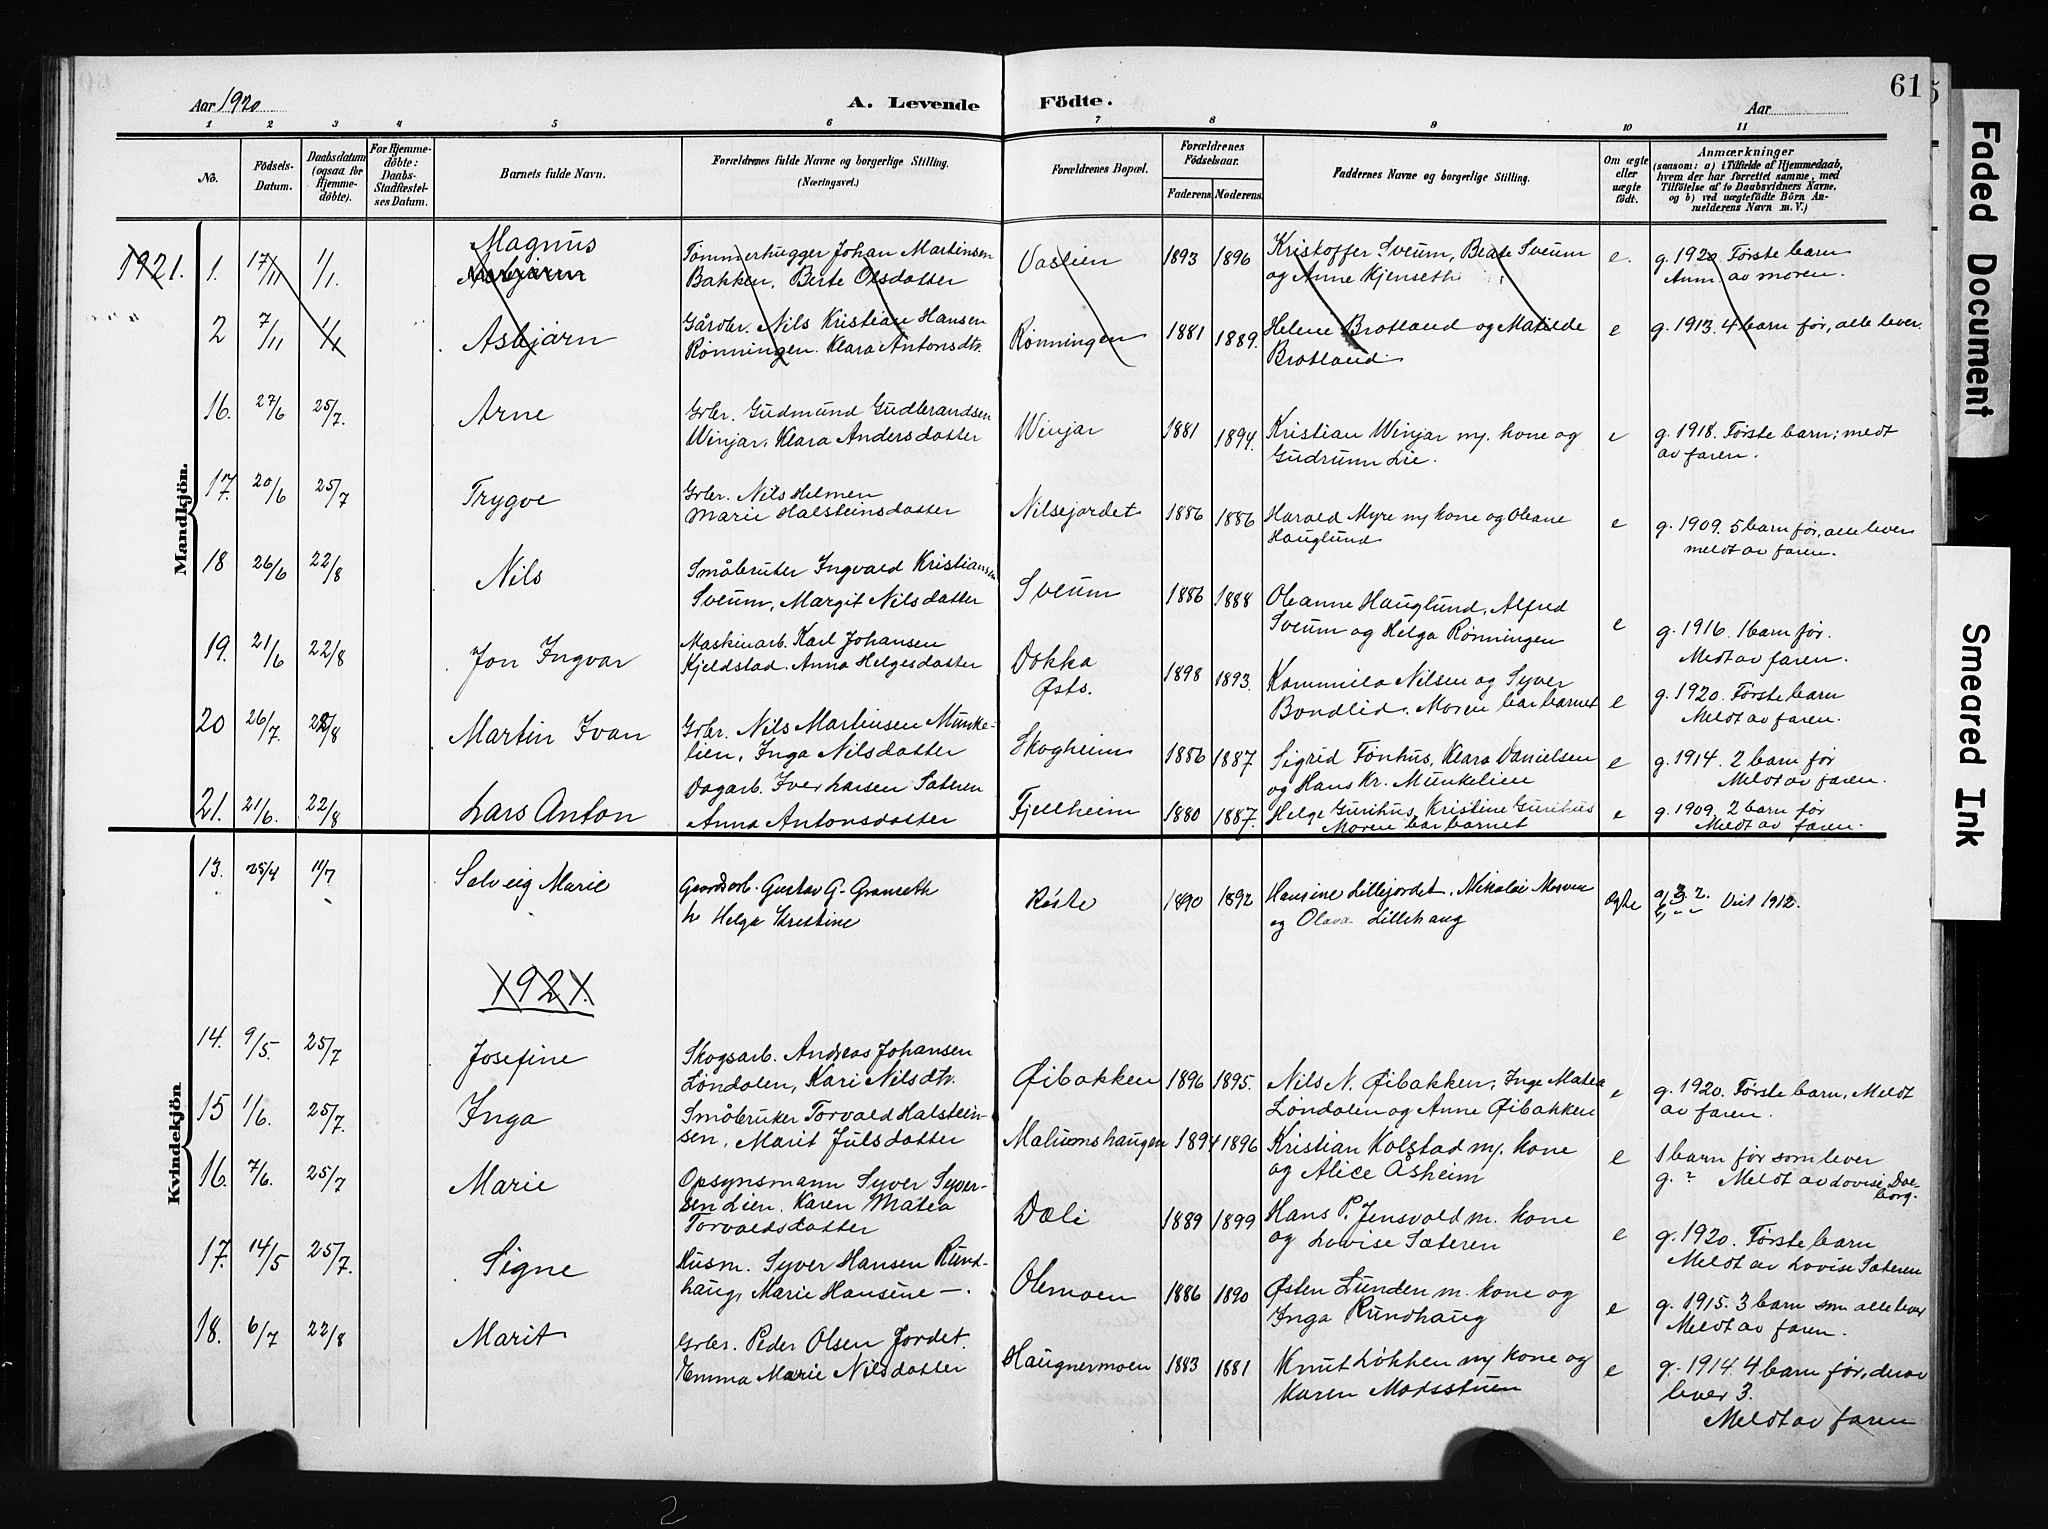 61
Aar 1920
A. Levende Födte.
Aar
1 2 3 4 5 6 7 8 9 10 11
No.
Födsels-
Datum.
Daabsdatum
(ogsaa for
Hjemme-
døbte).
For Hjemme-
døbte:
Daabs-
Stadfæstel-
ses Datum.
Barnets fulde Navn.
Forældrenes fulde Navne og borgerlige Stilling.
(Næringsvei.)
Forældrenes Bopæl.
Forældrenes
Födselsaar.
Faderens Moderens
Faddernes Navne og borgerlige Stilling.
Om ægte
eller
uægte
født.
Anmærkninger
(saasom: a) i Tilfælde af Hjemmedaab,
hvem der har forrettet samme, med
Tilföielse af to Daabsvidners Navne,
og b) ved uægtefødte Börn An-
melderens Navn m. V.)
Mandkjön.
1921. 1. 17/11 1/1. Magnus
Asbjørn
Tømmerhugger Johan Martinsen
Bakken, Berte Olsdatter
1893 1896
Kristoffer Sveum, Beate Sveum
og Anne Kjenseth
e.
g. 1920 Første barn
Anm. av moren.
2 7/11 1/1 Asbjørn
Gårdbr. Nils Kristian Hansen
Rønningen. Klara Antonsdtr.
Rønningen 1881 1889.
Helene Brotland og Matilde
Brotland
e
g. 1913. 4 barn før, alle lever.
16. 27/6 25/7. Arne
Grbr. Gudmund Gudbrandsen
Winjar, Klara Andersdatter
Winjar 1881 1894.
Kristian Winjar m/. kone og
Gudrunn Lie.
e
g. 1918. Første barn; meldt
av faren.
17. 20/6 25/7 Trygve
Grbr. Nils Helmen
Marie Halsteinsdatter
Nilsejordet 1886 1886
Harald Myre m/ kone og Oleane
Hauglund
e
g. 1909. 5 barn før, alle lever
meldt av faren.
18 26/6 22/8 Nils
Småbruker Ingvald Kristiansen
Sveum, Margit Nilsdatter
Sveum 1886 1888
Oleanne Hauglund, Alfred
Sveum og Helga Rønningen
e
g. 1916. 1 barn før.
Meldt av faren.
19. 21/6 22/8 Jon Ingvar
Maskinarb. Karl Johansen
Kjeldstad. Anna Helgesdatter
Dokka
Østs.
1898 1893.
Kammilla Nilsen og Syver
Bondlid. Moren bar barnet
e
g. 1920. Første barn
Meldt av faren.
20 26/7. 22/8 Martin Ivan
Grbr. Nils Martinsen Munke-
lien, Inga Nilsdatter
Skogheim 1886 1887
Sigrid Tonhus, Klara Danielsen
og Hans Kr. Munkelien
e
g. 1914. 2 barn før
Meldt av faren.
21. 21/6. 22/8 Lars Anton
Dagarb. Iver Larsen Sateren
Anna Antonsdatter
Fjellheim 1880 1887.
Helge Gurihus, Kristine Gurihus
Moren bar barnet
e
g. 1909, 2 barn før
Meldt av faren.
Kvindekjön
13. 25/4 11/7 Solveig Marie
Gaardarb. Gustav G. Granseth
h Helga Kristine
Røste 1890 1892
Hansine Lillejordet, Nikolai
og Olava Lillehaug
ægte
Viet 1912.
1921.
14. 9/5. 25/7 Josefine
Skogsarb. Andreas Johansen
Løndalen, Kari Nilsdtr.
Øibakken 1896 1895.
Nils N. Øibakken, Inge Matea
Løndalen og Anne Øibakken
e
g. 1920. Første barn, Meldt
av faren.
15 1/6. 25/7. Inga
Småbruker Torvald Halstein-
sen, Marit Julsdatter
Maliumshaugen 1894 1896
Kristian Kolstad m/. kone
og Alice Åsheim
e
1 barn før som lever
g. ? Meldt av Lovise Dæ-
borg.
16. 7/6. 25/7 Marie
Opsynsmann Syver Syver-
sen Lien. Karen Matea
Torvaldsdatter
Dæli 1889 1899
Hans P. Jensvold m. kone
og Lovise Sæteren
e
g. 1920. Første barn
Meldt av Lovise Sæteren
17. 14/5 25/7. Signe
Husm. Syver Hansen Rund-
haug, Marie Hansine —.
Olemoen 1886 1890
Østen Lunden m. kone og
Inga Rundhaug
e
g. 1915. 3 barn som alle lever
Meldt av faren.
18. 6/7 22/8 Marit
Grbr. Peder Olsen Jordet.
Emma Marie Nilsdatter
Haugnermoen 1883 1881
Knut Løkken m/ kone og
Karen Modsstuen
e
g. 1914. 4 barn før, derav
lever 3.
Meldt av faren
2
Faded Document
Smeared Ink